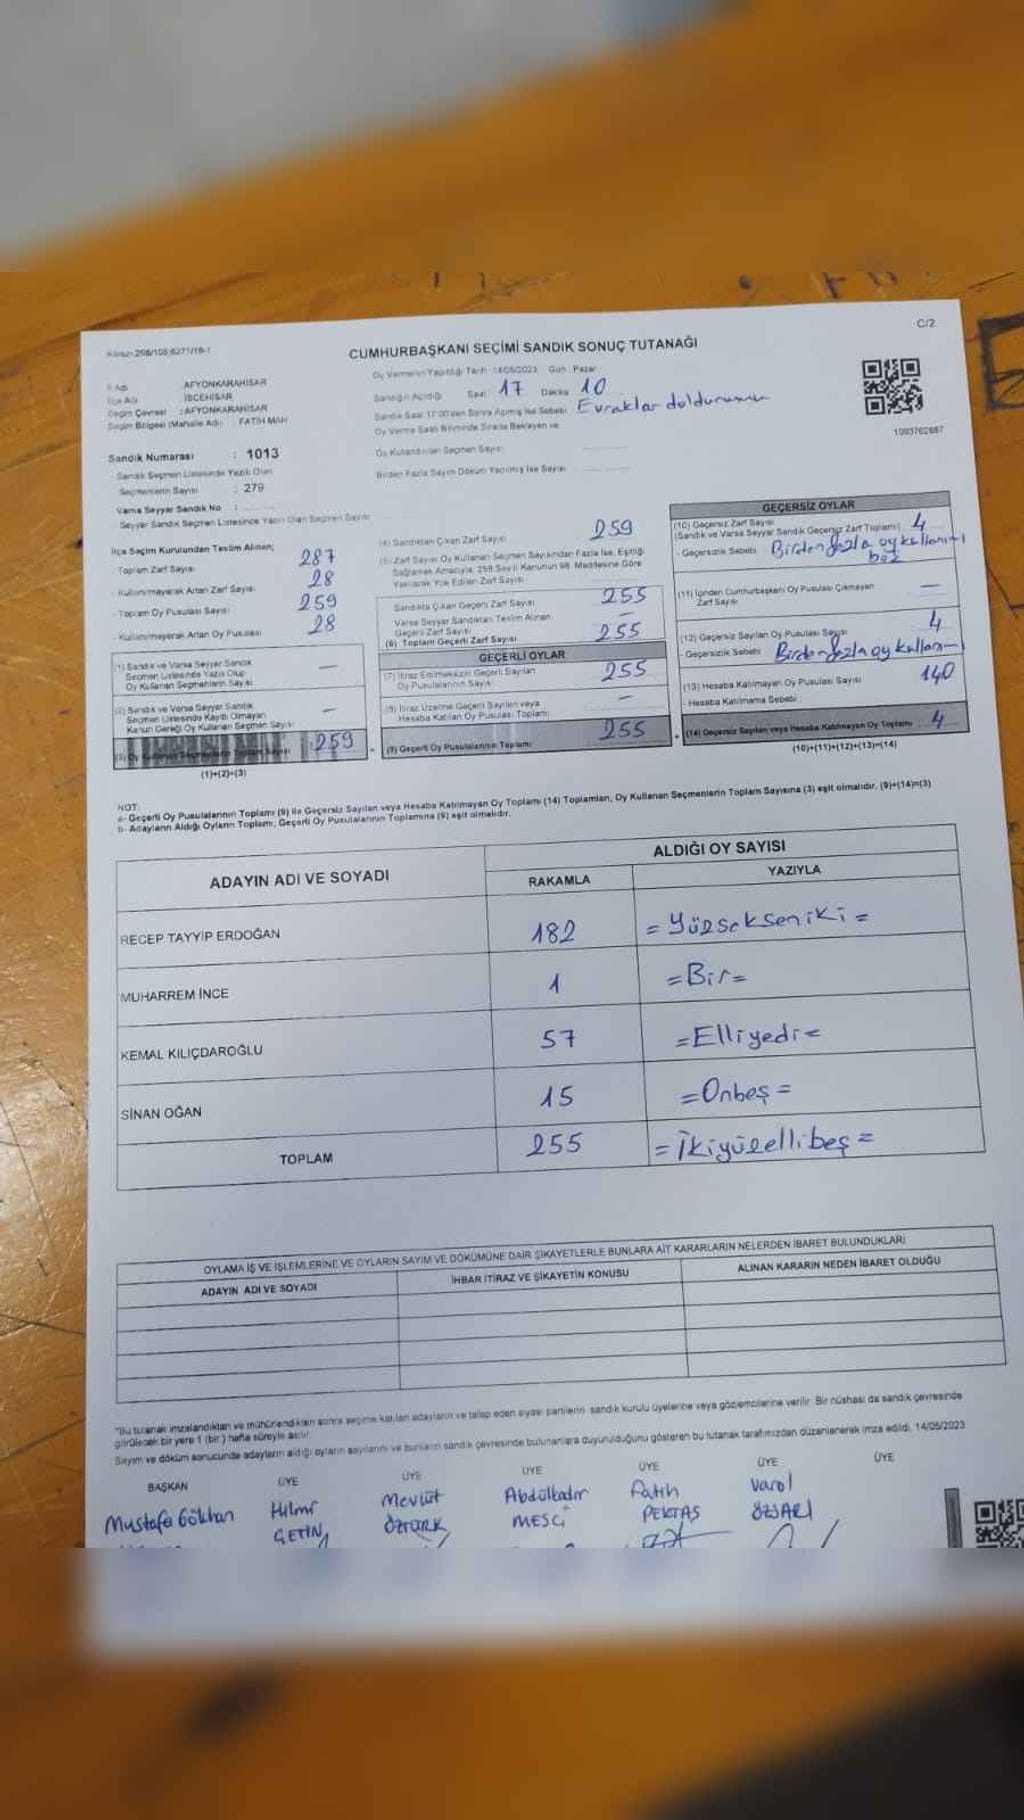 C/2
CUMHURBAŞKANI SEÇİMİ SANDIK SONUÇ TUTANAĞI
Oy Vermenin Yapıldığı Tarih : 14/05/2023 Gün : Pazar
İl Adı : AFYONKARAHİSAR
İlçe Adı : İSCEHİSAR
Seçim Çevresi : AFYONKARAHİSAR
Seçim Bölgesi (Mahalle Adı) : FATİH MAH.
Sandığın Açıldığı Saat 17 Dakika 10
Sandık Saat 17:00'den Sonra Açılmış İse Sebebi Evraklar dolduruması
Oy Verme Saati Bitiminde Sırada Bekleyen ve
Oy Kullandırılan Seçmen Sayısı
Birden Fazla Sayım Döküm Yapılmış İse Sayısı
Sandık Numarası : 1013
Sandık Seçmen Listesinde Yazılı Olan
Seçmenlerin Sayısı : 279
Varsa Seyyar Sandık No :
Seyyar Sandık Seçmen Listesinde Yazılı Olan Seçmen Sayısı
İlçe Seçim Kurulundan Teslim Alınan;
Toplam Zarf Sayısı 287
- Kullanılmayarak Artan Zarf Sayısı 28
- Toplam Oy Pusulası Sayısı 259
- Kullanılmayarak Artan Oy Pusulası 28
(1) Sandık ve Varsa Seyyar Sandık
Seçmen Listesinde Yazılı Olup
Oy Kullanan Seçmenlerin Sayısı —
(2) Sandık ve Varsa Seyyar Sandık
Seçmen Listesinde Kayıtlı Olmayan
Kanun Gereği Oy Kullanan Seçmen Sayısı —
(3) Oy Kullanan Seçmenlerin Toplam Sayısı 259
(1)+(2)=(3)
(4) Sandıktan Çıkan Zarf Sayısı 259
(5) Zarf Sayısı Oy Kullanan Seçmen Sayısından Fazla İse, Eşitliği
Sağlamak Amacıyla, 298 Sayılı Kanunun 98. Maddesine Göre
Yakılarak Yok Edilen Zarf Sayısı
Sandıkta Çıkan Geçerli Zarf Sayısı 255
Varsa Seyyar Sandıktan Teslim Alınan
Geçerli Zarf Sayısı —
(6) Toplam Geçerli Zarf Sayısı 255
GEÇERLİ OYLAR
(7) İtiraz Edilmeksizin Geçerli Sayılan
Oy Pusulalarının Sayısı 255
(8) İtiraz Üzerine Geçerli Sayılan veya
Hesaba Katılan Oy Pusulası Toplamı —
(9) Geçerli Oy Pusulalarının Toplamı 255
1003762887
GEÇERSİZ OYLAR
(10) Geçersiz Zarf Sayısı
(Sandık ve Varsa Seyyar Sandık Geçersiz Zarf Toplamı) 4
- Geçersizlik Sebebi Birden fazla oy kullanımı
(11) İçinden Cumhurbaşkanı Oy Pusulası Çıkmayan
Zarf Sayısı —
(12) Geçersiz Sayılan Oy Pusulası Sayısı 4
- Geçersizlik Sebebi Birden fazla oy kullanı-
(13) Hesaba Katılmayan Oy Pusulası Sayısı 140
- Hesaba Katılmama Sebebi
(14) Geçersiz Sayılan veya Hesaba Katılmayan Oy Toplamı 4
(10)+(11)+(12)+(13)=(14)
NOT:
a- Geçerli Oy Pusulalarının Toplamı (9) ile Geçersiz Sayılan veya Hesaba Katılmayan Oy Toplamı (14) Toplamları, Oy Kullanan Seçmenlerin Toplam Sayısına (3) eşit olmalıdır. (9)+(14)=(3)
b- Adayların Aldığı Oyların Toplamı, Geçerli Oy Pusulalarının Toplamına (9) eşit olmalıdır.
ADAYIN ADI VE SOYADI
ALDIĞI OY SAYISI
RAKAMLA YAZIYLA
RECEP TAYYİP ERDOĞAN 182 = Yüzsekseniki =
MUHARREM İNCE 1 =Bir=
KEMAL KILIÇDAROĞLU 57 =Elliyedi=
SİNAN OĞAN 15 =Onbeş=
TOPLAM 255 = İkiyüzellibeş =
OYLAMA İŞ VE İŞLEMLERİNE VE OYLARIN SAYIM VE DÖKÜMÜNE DAİR ŞİKAYETLERLE BUNLARA AİT KARARLARIN NELERDEN İBARET BULUNDUKLARI
ADAYIN ADI VE SOYADI İHBAR İTİRAZ VE ŞİKAYETİN KONUSU ALINAN KARARIN NEDEN İBARET OLDUĞU
"Bu tutanak imzalandıktan ve mühürlendikten sonra seçime katılan adayların ve talep eden siyasi partilerin sandık kurulu üyelerine veya gözlemcilerine verilir. Bir nüshası da sandık çevresinde
görülecek bir yere 1 (bir) hafta süreyle asılır.
Sayım ve döküm sonucunda adayların aldığı oyların sayılarını ve bunların sandık çevresinde bulunanlara duyurulduğunu gösteren bu tutanak tarafımızdan düzenlenerek imza edildi. 14/05/2023
BAŞKAN ÜYE ÜYE ÜYE ÜYE ÜYE ÜYE
Mustafa Gökhan Hilmi Mevlüt Abdülkadir Fatih Varol
ÇETİN ÖZTÜRK MESCİ PEKTAŞ